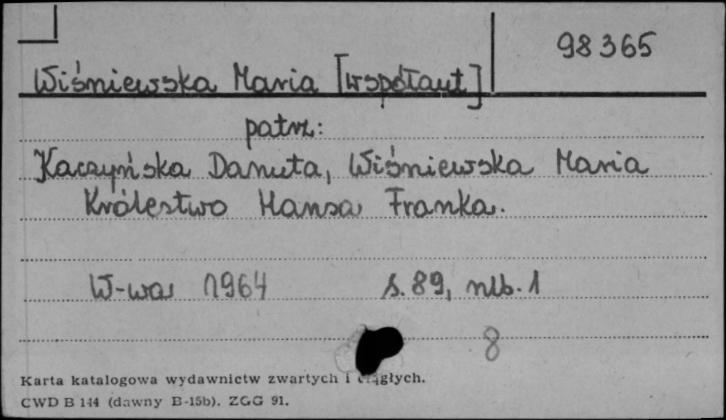 98365
Wiśniewska Maria [współaut]
patrz:
Kaczyńska Danuta, Wiśniewska Maria
Królestwo Hansa Franka.
W-wa 1964 s. 89, nlb. 1
8
Karta katalogowa wydawnictw zwartych i ciągłych.
CWD B 144 (dawny B-15b). ZGG 91.